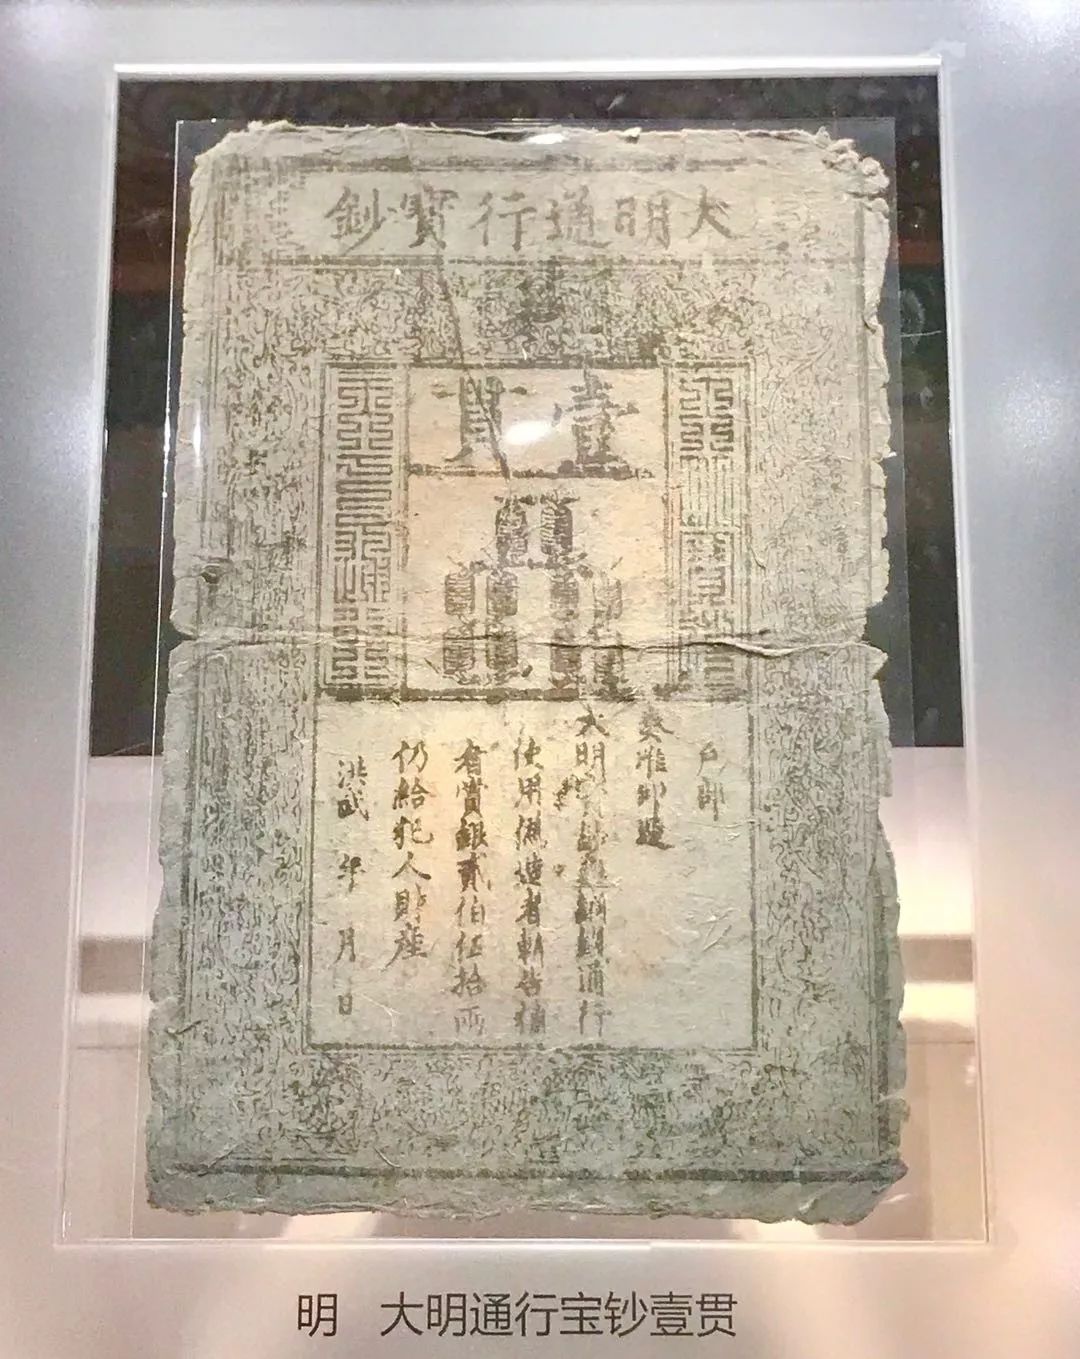 大明通行寶鈔
壹貫
戶部
奏准印造
大明寶鈔與銅錢通行
使用僞造者斬告捕
者賞銀貳伯伍拾兩
仍給犯人財産
洪武 年 月 日
明 大明通行宝钞壹贯